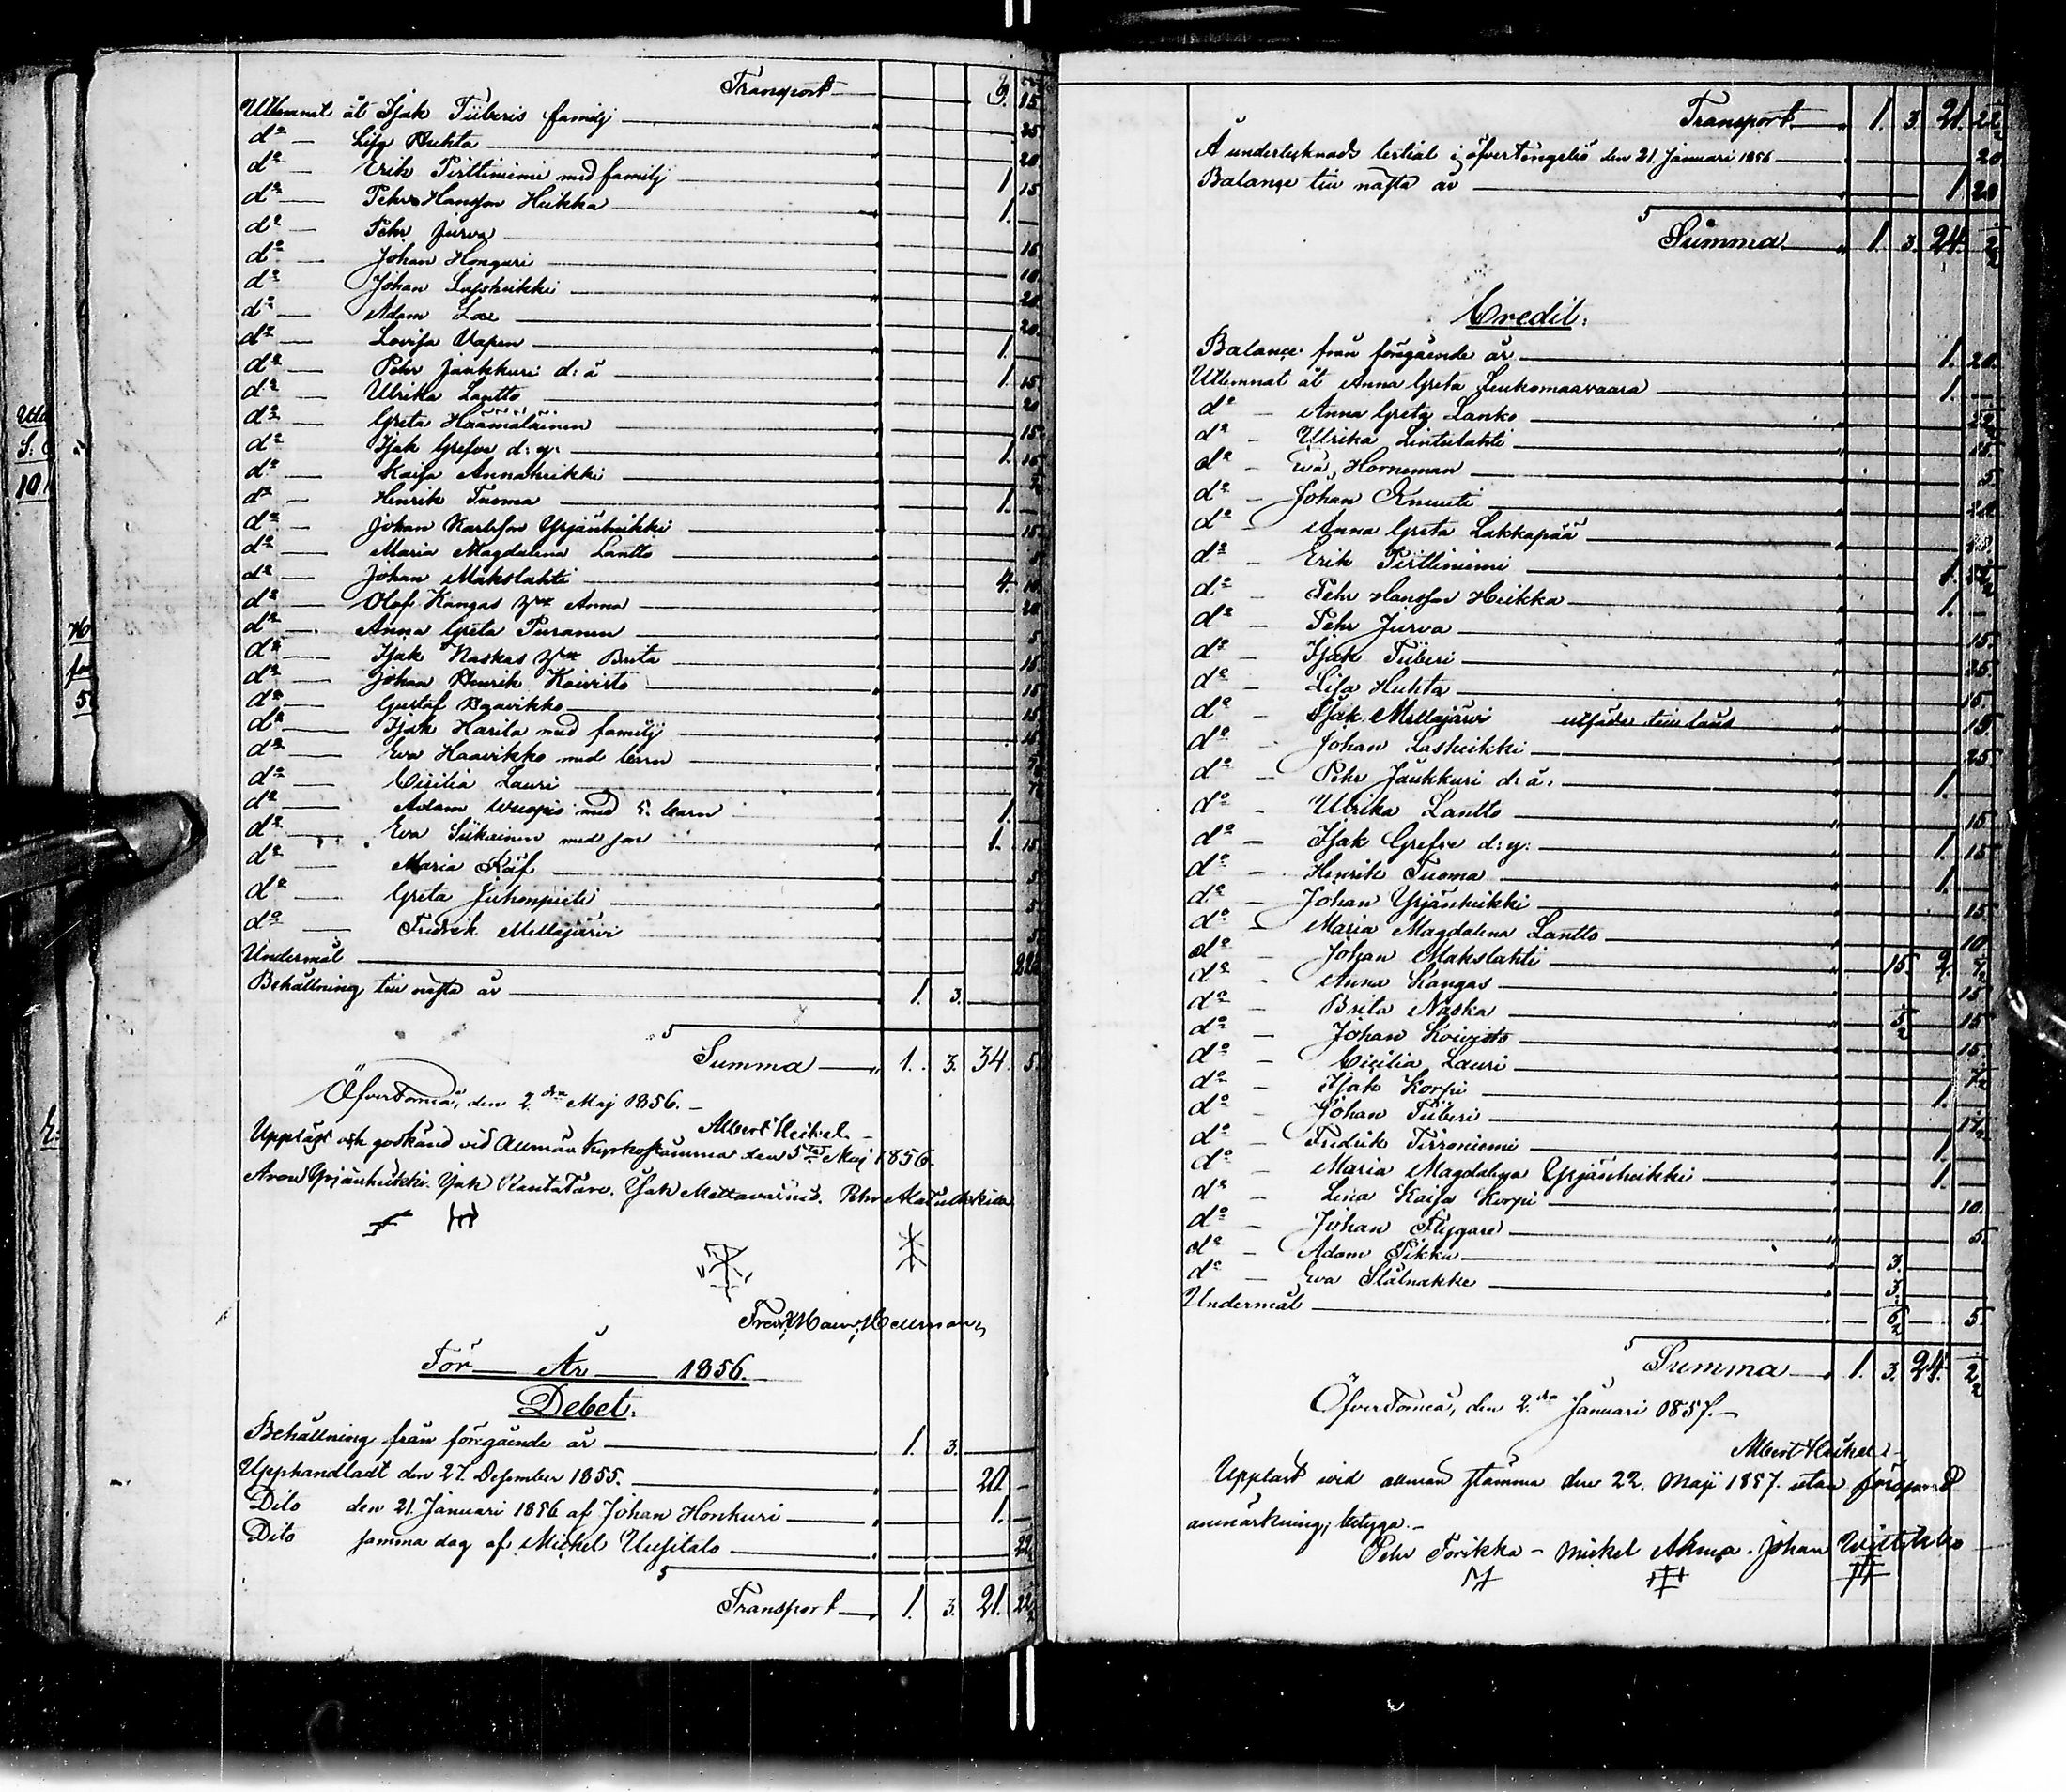 Transport 9. 15
Utlemnat åt Isak Tiiberis familj 25
do Lisa Huhta 20
do Erik Pirttiniemi med familj 1 15
do Pehr Hansson Heikka 1. —
do Pehr Jurva 15
do Johan Honguri 10
do Johan Lassheikki 20
do Adam Loe 20
do Lovisa Vapen 1. —
do Pehr Jaukkuri d: ä 1 15
do Ulrika Lantto 20
do Greta Häämäläinen 15
do Isak Grefve d: y: 1. 15
do Kaisa Annaheikki
do Henrik Tuoma 1. —
do Johan Karlsson Yrjänheikki 15
do Maria Magdalena Lantto 5
do Johan Makslahti 4. 10
do Olof Kangas Anna 20
do Anna Greta Puranen 5
do Isak Naskas Brita 15
do Johan Henrik Koivisto 15
do Gustaf Haavikko 15
do Isak Harila med familj 15
do Eva Haavikko med barn
do Cicilia Lauri
do Adam med 5. barn 1. —
do Eva Siikainen med son 1. 15
do Maria Räf 5
do Greta Juhonpieti 5
do Fredrik Mellajärvi 5
Undermål
Behållning till nästa år 1. 3.
S Summa 1. 3. 34. 5.
ÖfverTorneå, den 2dra Maj 1856. —
Albert Heikel. —
Uppläst och godkänd vid Allmän Kyrkostämma den 5te Maj 1856.
Aron Yrjänheikki. Isak Rautatare. Isak Mettavainio. Pehr
Fredr. Hellman
För År 1856.
Debet:
Behållning från föregående år 1. 3. —
Upphandladt den 27. December 1855. 20. —
Dito den 21. Januari 1856 af Johan Honkuri 1. —
Dito samma dag af Mickel Uusitalo 22
S Transport 1. 3. 21. 22
Transport 1. 3. 21. 22
Å undertecknads tertial i öfverTengeliö den 21. Januari 1856 20
Balance till nästa år 1. 20
S Summa 1. 3. 24. 2
Credit:
Balance från föregående år 1. 20.
Utlemnat åt Anna Greta Leukomaavaara 1. —
do Anna Greta Lanko
do Ulrika Lintulahti 15
do Eva Horneman 5.
do Johan Knuuti 20
do Anna Greta Lakkapää
do Erik Pirttiniemi 1.
do Pehr Hansson Heikka 1. —
do Pehr Jurva 15.
do Isak Tiiberi 25.
do Lisa Huhta 15
do Isak Mellajärvi utsäde till låns 15.
do Johan Lassheikki 25.
do Pehr Jaukkuri d: ä. 1. —
do Ulrika Lantto 15
do Isak Grefve d: y: 1. 15
do Henrik Tuoma 1. —
do Johan Yrjänheikki 15.
do Maria Magdalena Lantto 10
do Johan Makslahti 15. 2.
do Anna Kangas 15
do Brita Naska 15
do Johan Koivisto 15.
do Cicilia Lauri
do Isak Korpi 1. —
do Johan Tiiberi
do Fredrik Tirroniemi 1. —
do Maria Magdalena Yrjänheikki 1. —
do Lena Kaisa Korpi 10.
do Johan Flygare 5.
do Adam Pikku 3.
do Eva Stålnakke 3.
Undermål 5.
S Summa 1. 3. 24. 2
ÖfverTorneå, den 2dra Januari 1857. —
Albert Heikel. —
Uppläst wid allmän stämma den 22. Maji 1857. utan
anmärkning; betyga. —
Pehr Torikka — Mickel Akmo. Johan